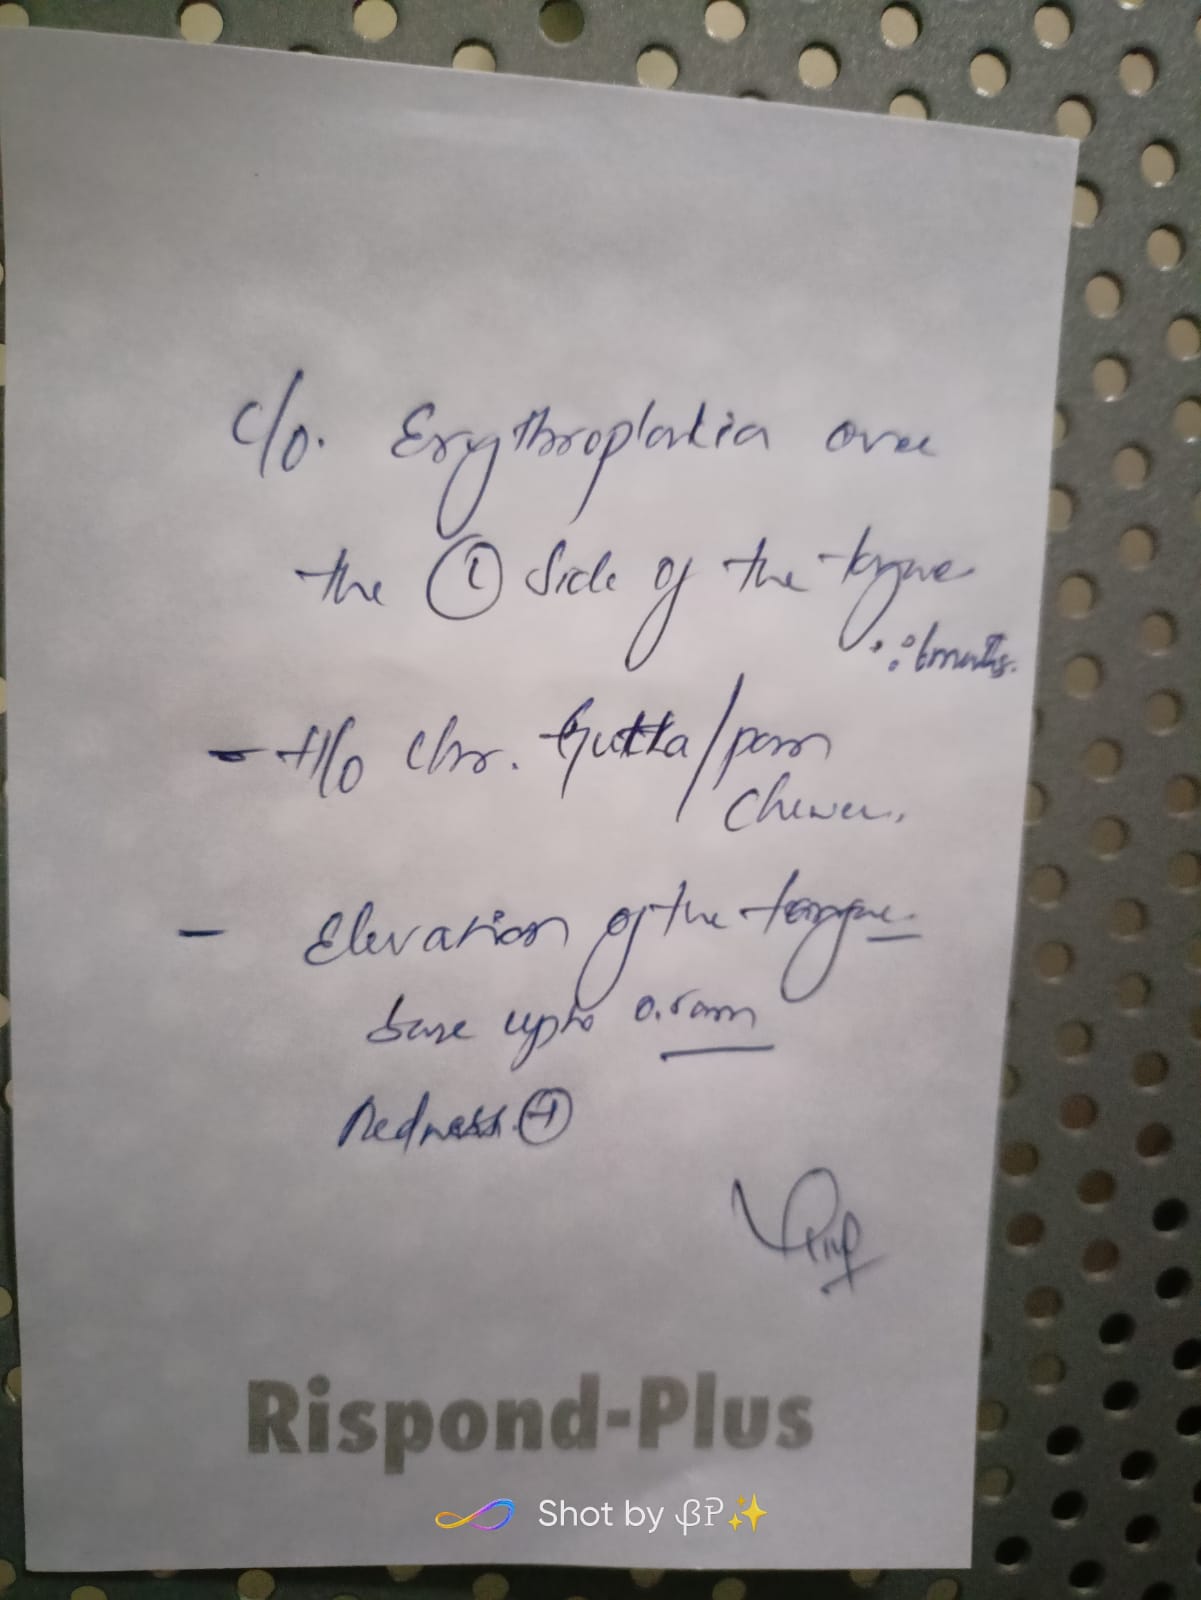 c/o. Erythroplakia over
the Ⓛ Side of the tongue
months.
- H/o Chr. Gutka/pan
Chewer.
- Elevation of the tongue
base upto 0.5mm
Redness ⊕
Rispond-Plus
Shot by βP✨